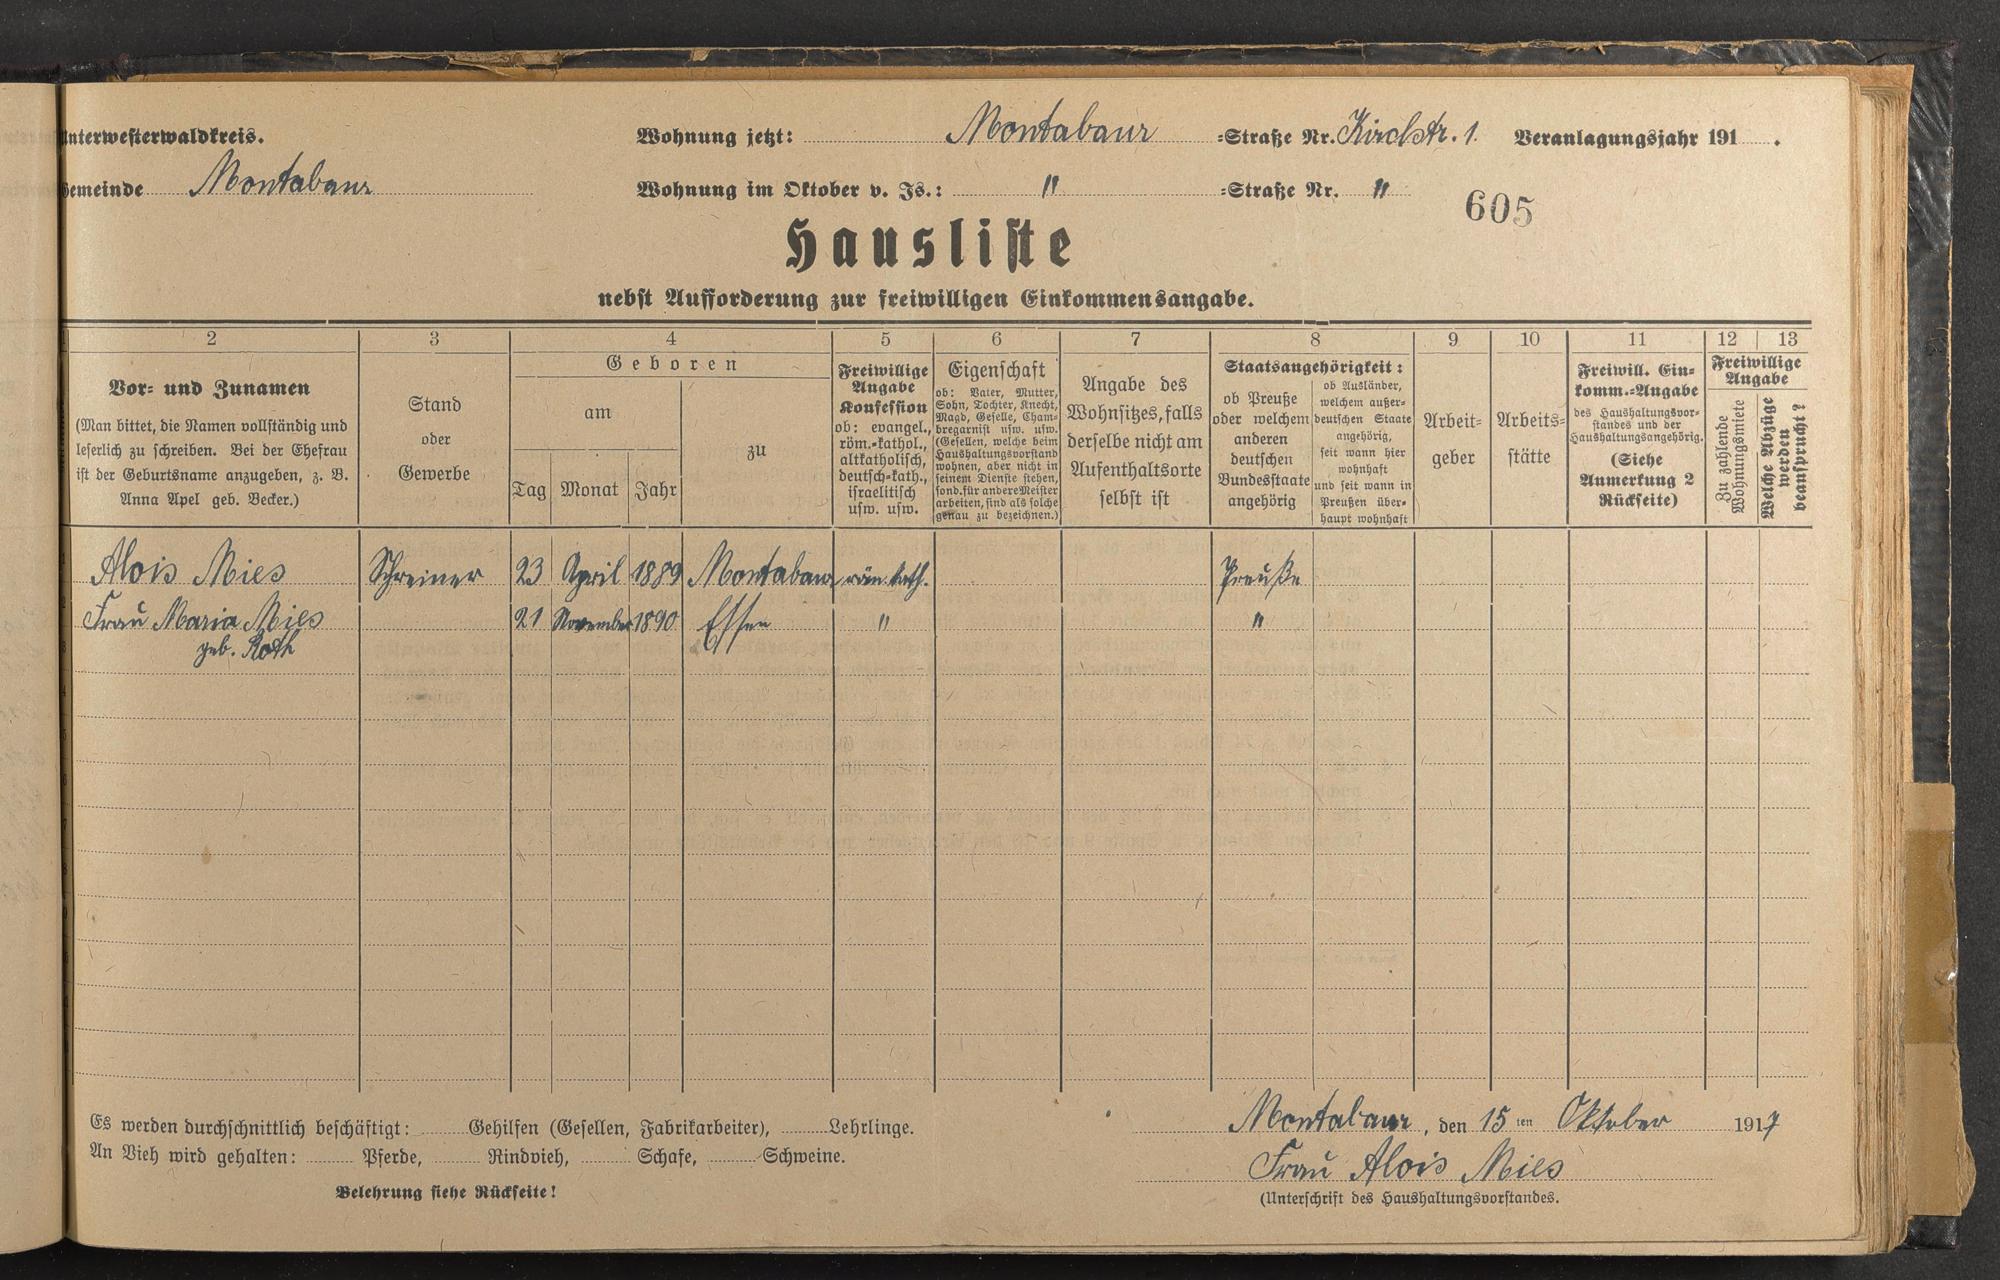 Unterwesterwaldkreis. Wohnung jetzt: Montabaur =Straße Nr. Kirchstr. 1. Veranlagungsjahr 191 .
Gemeinde Montabaur Wohnung im Oktober v. Js.: " =Straße Nr. "
605
Hausliste
nebst Aufforderung zur freiwilligen Einkommensangabe.
2 3 4 5 6 7 8 9 10 11 12 13
Vor- und Zunamen
(Man bittet, die Namen vollständig und
leserlich zu schreiben. Bei der Ehefrau
ist der Geburtsname anzugeben, z. B.
Anna Apel geb. Becker.)
Stand
oder
Gewerbe
Geboren
am
Tag Monat Jahr
zu
Freiwillige
Angabe
Konfession
ob: evangel.,
röm.-kathol.,
altkatholisch,
deutsch-kath.,
israelitisch
usw. usw.
Eigenschaft
ob: Vater, Mutter,
Sohn, Tochter, Knecht,
Magd, Geselle, Cham-
bregarnist usw. usw.
(Gesellen, welche beim
Haushaltungsvorstand
wohnen, aber nicht in
seinem Dienste stehen,
sond. für andere Meister
arbeiten, sind als solche
genau zu bezeichnen.)
Angabe des
Wohnsitzes, falls
derselbe nicht am
Aufenthaltsorte
selbst ist
Staatsangehörigkeit:
ob Preuße
oder welchem
anderen
deutschen
Bundesstaate
angehörig
ob Ausländer,
welchem außer-
deutschen Staate
angehörig,
seit wann hier
wohnhaft
und seit wann in
Preußen über-
haupt wohnhaft
Arbeit-
geber
Arbeits-
stätte
Freiwill. Ein-
komm.-Angabe
des Haushaltungsvor-
standes und der
Haushaltungsangehörig.
(Siehe
Anmerkung 2
Rückseite)
Freiwillige
Angabe
Zu zahlende
Wohnungsmiete
Welche Abzüge
werden
beansprucht?
Alois Mies Schreiner 23 April 1889 Montabaur röm. kath. Preuße
Frau Maria Mies 21 November 1890 Essen " "
geb. Roth
Es werden durchschnittlich beschäftigt: Gehilfen (Gesellen, Fabrikarbeiter), Lehrlinge.
An Vieh wird gehalten: Pferde, Rindvieh, Schafe, Schweine.
Belehrung siehe Rückseite!
Montabaur, den 15ten Oktober 1917
Frau Alois Mies
(Unterschrift des Haushaltungsvorstandes.